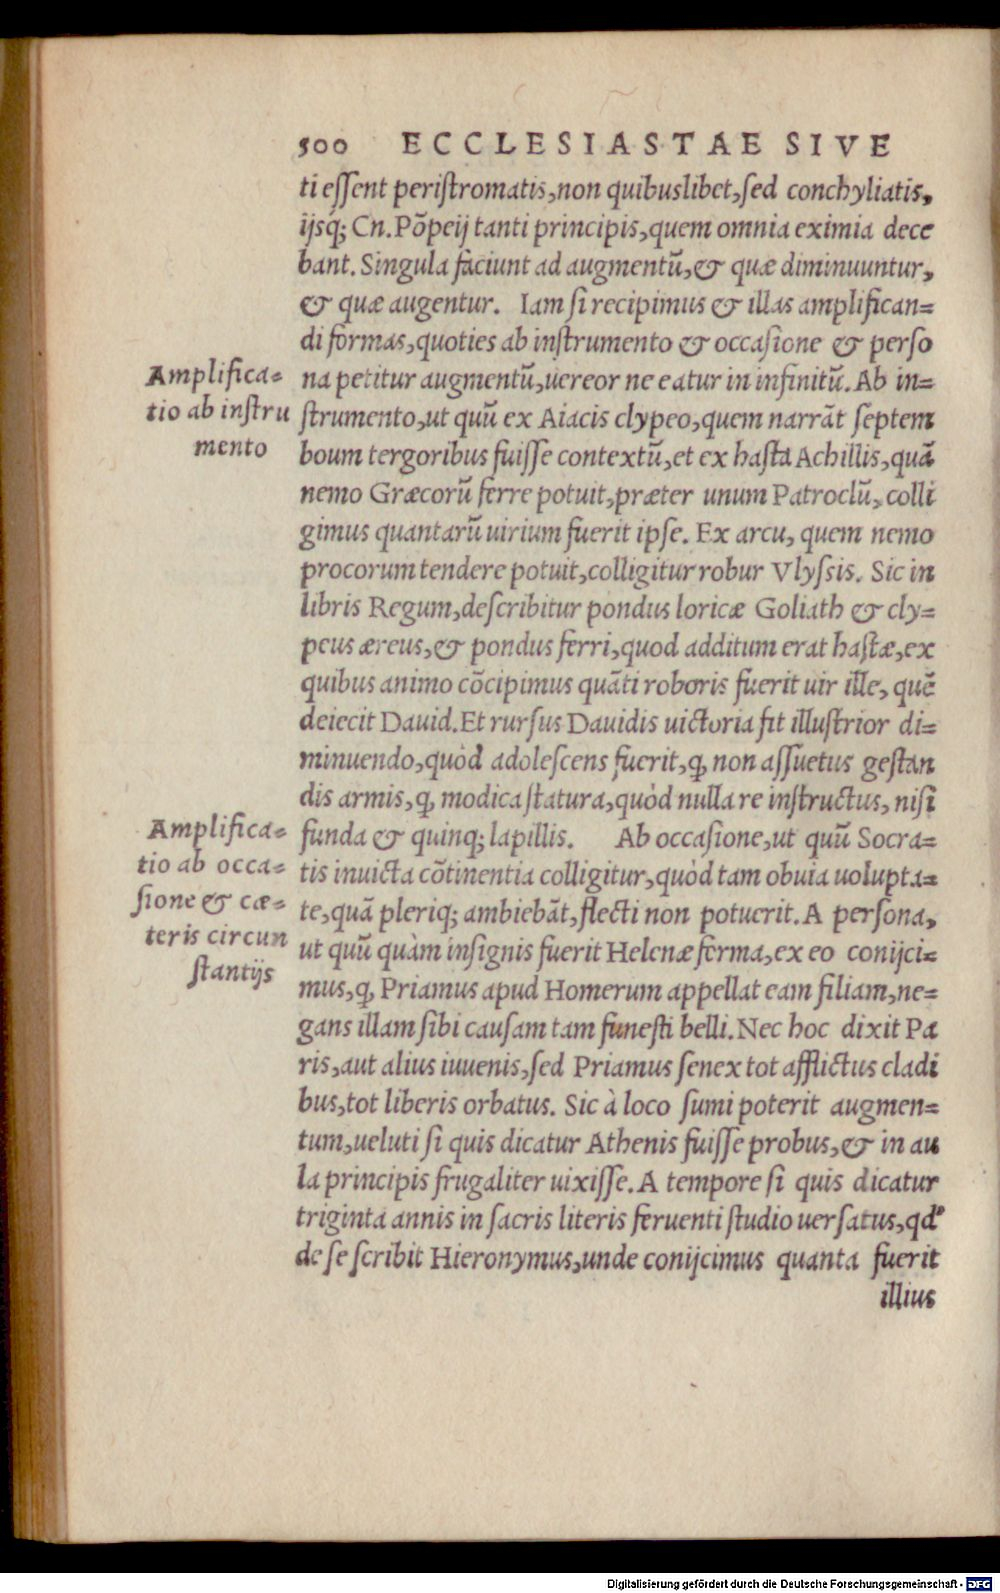 500 ECCLESIASTAE SIVE
ti eſſent periſtromatis, non quibuslibet, ſed conchyliatis,
ijsq; Cn. Põpeij tanti principis, quem omnia eximia dece
bant. Singula faciunt ad augmentũ, & quæ diminuuntur,
& quæ augentur. Iam ſi recipimus & illas amplifican=
di formas, quoties ab inſtrumento & occaſione & perſo
na petitur augmentũ, uereor ne eatur in infinitũ. Ab in=
ſtrumento, ut quũ ex Aiacis clypeo, quem narrãt ſeptem
boum tergoribus fuiſſe contextũ, et ex haſta Achillis, quã
nemo Græcorũ ferre potuit, præter unum Patroclũ, colli
gimus quantarũ uirium fuerit ipſe. Ex arcu, quem nemo
procorum tendere potuit, colligitur robur Vlyſsis. Sic in
libris Regum, deſcribitur pondus loricæ Goliath & cly=
peus æreus, & pondus ferri, quod additum erat haſtæ, ex
quibus animo cõcipimus quãti roboris fuerit uir ille, quẽ
deiecit Dauid. Et rurſus Dauidis uictoria fit illuſtrior di=
minuendo, quòd adoleſcens fuerit, ꝙ non aſſuetus geſtan
dis armis, ꝙ modica ſtatura, quòd nulla re inſtructus, niſi
funda & quinq; lapillis. Ab occaſione, ut quũ Socra=
tis inuicta cõtinentia colligitur, quòd tam obuia uolupta=
te, quã pleriq; ambiebãt, flecti non potuerit. A perſona,
ut quũ quàm inſignis fuerit Helenæ forma, ex eo conijci=
mus, ꝙ Priamus apud Homerum appellat eam filiam, ne=
gans illam ſibi cauſam tam funeſti belli. Nec hoc dixit Pa
ris, aut alius iuuenis, ſed Priamus ſenex tot afflictus cladi
bus, tot liberis orbatus. Sic à loco ſumi poterit augmen=
tum, ueluti ſi quis dicatur Athenis fuiſſe probus, & in au
la principis frugaliter uixiſſe. A tempore ſi quis dicatur
triginta annis in ſacris literis feruenti ſtudio uerſatus, qd'
de ſe ſcribit Hieronymus, unde conijcimus quanta fuerit
illius
Amplifica=
tio ab inſtru
mento
Amplifica=
tio ab occa=
ſione & cæ=
teris circun
ſtantijs
Digitalisierung gefördert durch die Deutsche Forschungsgemeinschaft - DFG